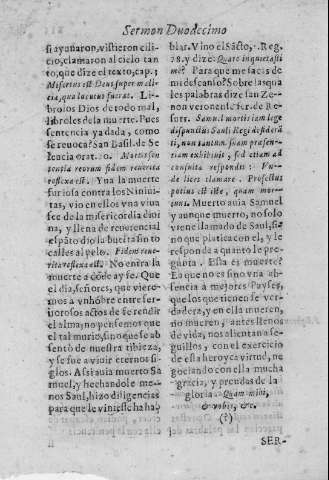 Sermon Duodecimo
si ayunaron, vistieron cili-
cio, clamaron al cielo tan
to, que dize el texto, cap. 3
Misertus est Deus super mali-
cia, qua locutus fuerat. Li-
brolos Dios de todo mal,
libroles de la muerte. Pues
sentencia ya dada, como
se reuoca? San Basil. de Se
leucia orat. 10. Mortis sen
tentia reorum fidem reuerita
reflexa est. Yua la muerte
furiosa contra los Niniui-
tas, vio en ellos vna viua
fee de la misericordia diui
na, y llena de reuerencial
espãto dio la buelta sin to
calles al pelo. Fidem reue-
rita reflexa est. No entra la
muerte a dõde ay fe. Que
el dia, señores, que viere-
mos a vn hõbre entre fer-
uorosos actos de fe rendir
el alma, no pensemos que
el tal murio, sino que se ab
sentò de nuestra tibieza,
y se fue a viuir eternos si-
glos. Assi auia muerto Sa
muel, y hechandole me-
nos Saul, hizo diligencias
para que le viniesse ha hab
blar. Vino el Sãcto, 1. Reg.
28. y dize: Quare inquietasti
me? Para que me sacas de
mi descanso? Sobre las qua
les palabras dize san Ze-
non veronense ser. de Re-
surr. Samuel mortis iam lege
dispunctus Sauli Regi desiderã
ti, non tantum suam præsen-
tiam exhibuit, sed etiam ad
consulta respondit: Vn-
de licet clamare. Profectus
potius est iste, quam mor-
tuus. Muerto auia Samuel
y aunque muerto, no solo
viene llamado de Saul, si-
no que platica con el, y le
responde a quanto le pre-
gunta. Esta es muerte?
Ea que no es sino vna ab-
sencia à mejores Payses,
que los que tienen fe ver-
dadera, y en ella mueren,
no mueren, antes llenos
de vida, nos alientan a se-
guillos, con el exercicio
de esta heroyca virtud, ne
gociando con ella mucha
gracia, y prendas de la
gloria. Quam mihi,
& vobis, &c.
(?)
SER-